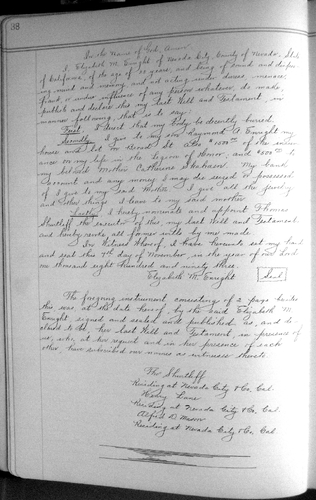 38
In the Name of God, Amen.
I Elizabeth M. Enright of Nevada City, County of Nevada, State
of California, of the age of years, and being of sound and dispos-
ing mind and memory and not acting under duress, menace,
fraud, or undue influence of any person whatever, do make,
publish and declare this my last Will and Testament, in
manner following, that is to say:
First. I direct that my body be decently buried.
Secondly. I give to my son Raymond A. Enright my
house and lot on Street. Also $1000 of the insur
ance on my life in the Legion of Honor, and $500 to
my beloved Mother Catherine. My bank
account and any money I may die seized or possessed
of I give to my said Mother. I give all the jewelry
and other things I leave to my said mother.
Lastly. I hereby nominate and appoint Thomas
Shurtleff the executor of this, my last Will and Testament
and hereby revoke all former wills by me made.
In Witness Whereof, I have hereunto set my hand
and seal this 7th day of November, in the year of our Lord
one thousand eight hundred and ninety three.
Elizabeth M. Enright
Seal
The foregoing instrument consisting of 2 page besides
this was, at the date hereof, by the said Elizabeth M.
Enright, signed and sealed and published as, and de-
clared to be, her last Will and Testament, in presence of
us, who, at her request and in her presence of each
other, have subscribed our names as witnesses thereto.
Tho Shurtleff
Residing at Nevada City & Co. Cal.
Henry Lane
Residing at Nevada City & Co. Cal.
Alfred D. Mason
Residing at Nevada City & Co. Cal